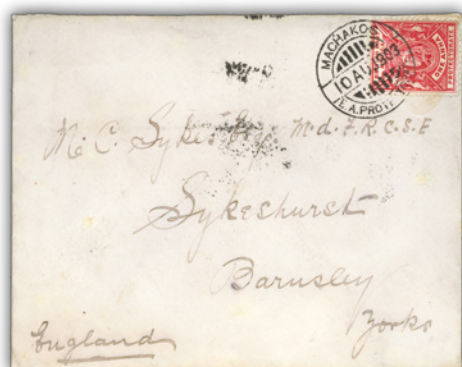 MACHAKOS
10 AU 1903
E.A. PROT
ONE ANNA
PROTECTORATE
M. C. Sykes Esq M.d. F.R.C.S.E
Sykeshurst
Barnsley
Yorks
England